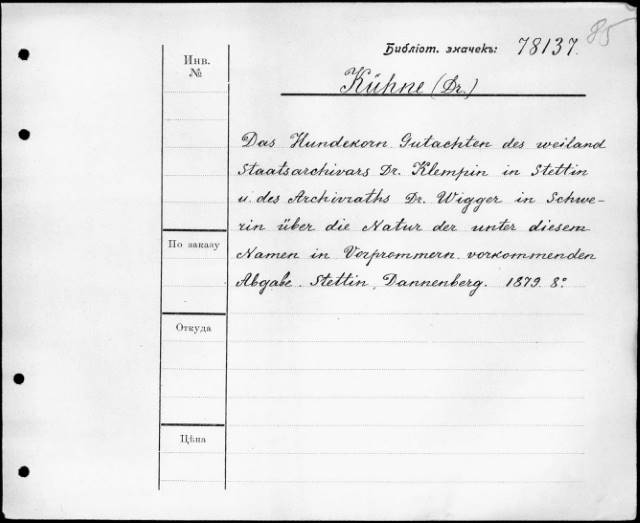 85
Библіот. значекъ: 78137.
Инв.
№
Kühne (Dr.)
Das Hundekorn. Gutachten des weiland
Staatsarchivars Dr. Klempin in Stettin
u. des Archivraths Dr. Wigger in Schwe-
rin über die Natur der unter diesem
Namen in Vorpommern vorkommenden
Abgabe. Stettin, Dannenberg. 1879. 8°.
По заказу
Откуда
Цѣна